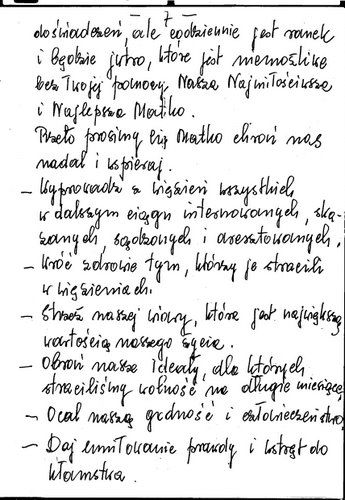 - 7 -
doświadczeń, ale codziennie jest ranek
i będzie jutro, które jest niemożliwe
bez Twojej pomocy Nasza Najmiłościwsza
i Najlepsza Matko.
Przeto prosimy Cię Matko chroń nas
nadal i wspieraj.
- Wyprowadź z więzień wszystkich
w dalszym ciągu internowanych, ska-
zanych, sądzonych i aresztowanych.
- Wróć zdrowie tym, którzy je stracili
w więzieniach.
- Strzeż naszej wiary, która jest największą
wartością naszego życia.
- Obroń nasze ideały, dla których
straciliśmy wolność na długie miesiące
- Ocal naszą godność i człowieczeństwo
- Daj umiłowanie prawdy i wstręt do
kłamstwa.